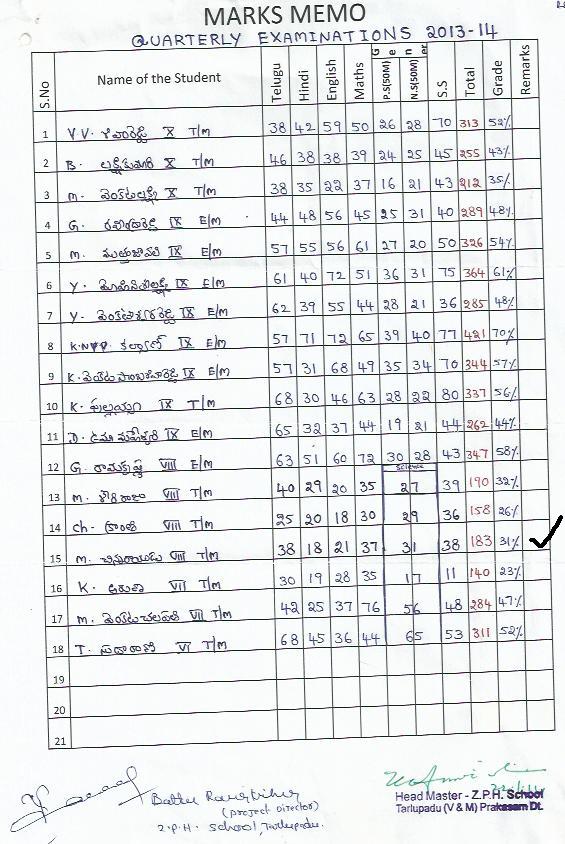 MARKS MEMO
QUARTERLY EXAMINATIONS 2013-14
S.No Name of the Student Telugu Hindi English Maths Gener P.S(50M) N.S(50M) S.S Total Grade Remarks
1 V.V. X T/M 38 42 59 50 26 28 70 313 52%
2 B. X T/M 46 38 38 39 24 25 45 255 43%
3 M. వెంకటలక్ష్మి X T/M 38 35 22 37 16 21 43 212 35%
4 G. IX E/M 44 48 56 45 25 31 40 289 48%
5 M. IX E/M 57 55 56 61 27 20 50 326 54%
6 Y. IX E/M 61 40 72 51 36 31 75 364 61%
7 Y. IX E/M 62 39 55 44 28 21 36 285 48%
8 K.N.V.P. కల్యాణ్ IX E/M 57 71 72 65 39 40 77 421 70%
9 K. IX E/M 57 31 68 49 35 34 70 344 57%
10 K. పుల్లయ్య IX T/M 68 30 46 63 28 22 80 337 56%
11 D. ఉమా మహేశ్వరి IX E/M 65 32 37 44 19 21 44 262 44%
12 G. రామకృష్ణ VIII E/M 63 51 60 72 30 28 43 347 58%
Science
13 M. VIII T/M 40 29 20 35 27 39 190 32%
14 Ch. క్రాంతి VIII T/M 25 20 18 30 29 36 158 26%
15 M. చినరాయుడు VIII T/M 38 18 21 37 31 38 183 31% ✓
16 K. అరుణ VII T/M 30 19 28 35 17 11 140 23%
17 M. వెంకటచలపతి VII T/M 42 25 37 76 56 48 284 47%
18 T. సుధారాణి VI T/M 68 45 36 44 65 53 311 52%
19
20
21
(Project Director)
Z.P.H. School, Tarlupadu.
Head Master - Z.P.H. School
Tarlupadu (V & M) Prakasam Dt.